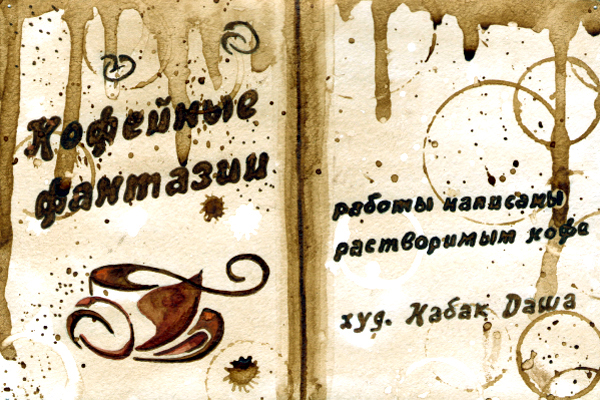 Кофейные
фантазии
работы написаны
растворимым кофе
худ. Кабак Даша